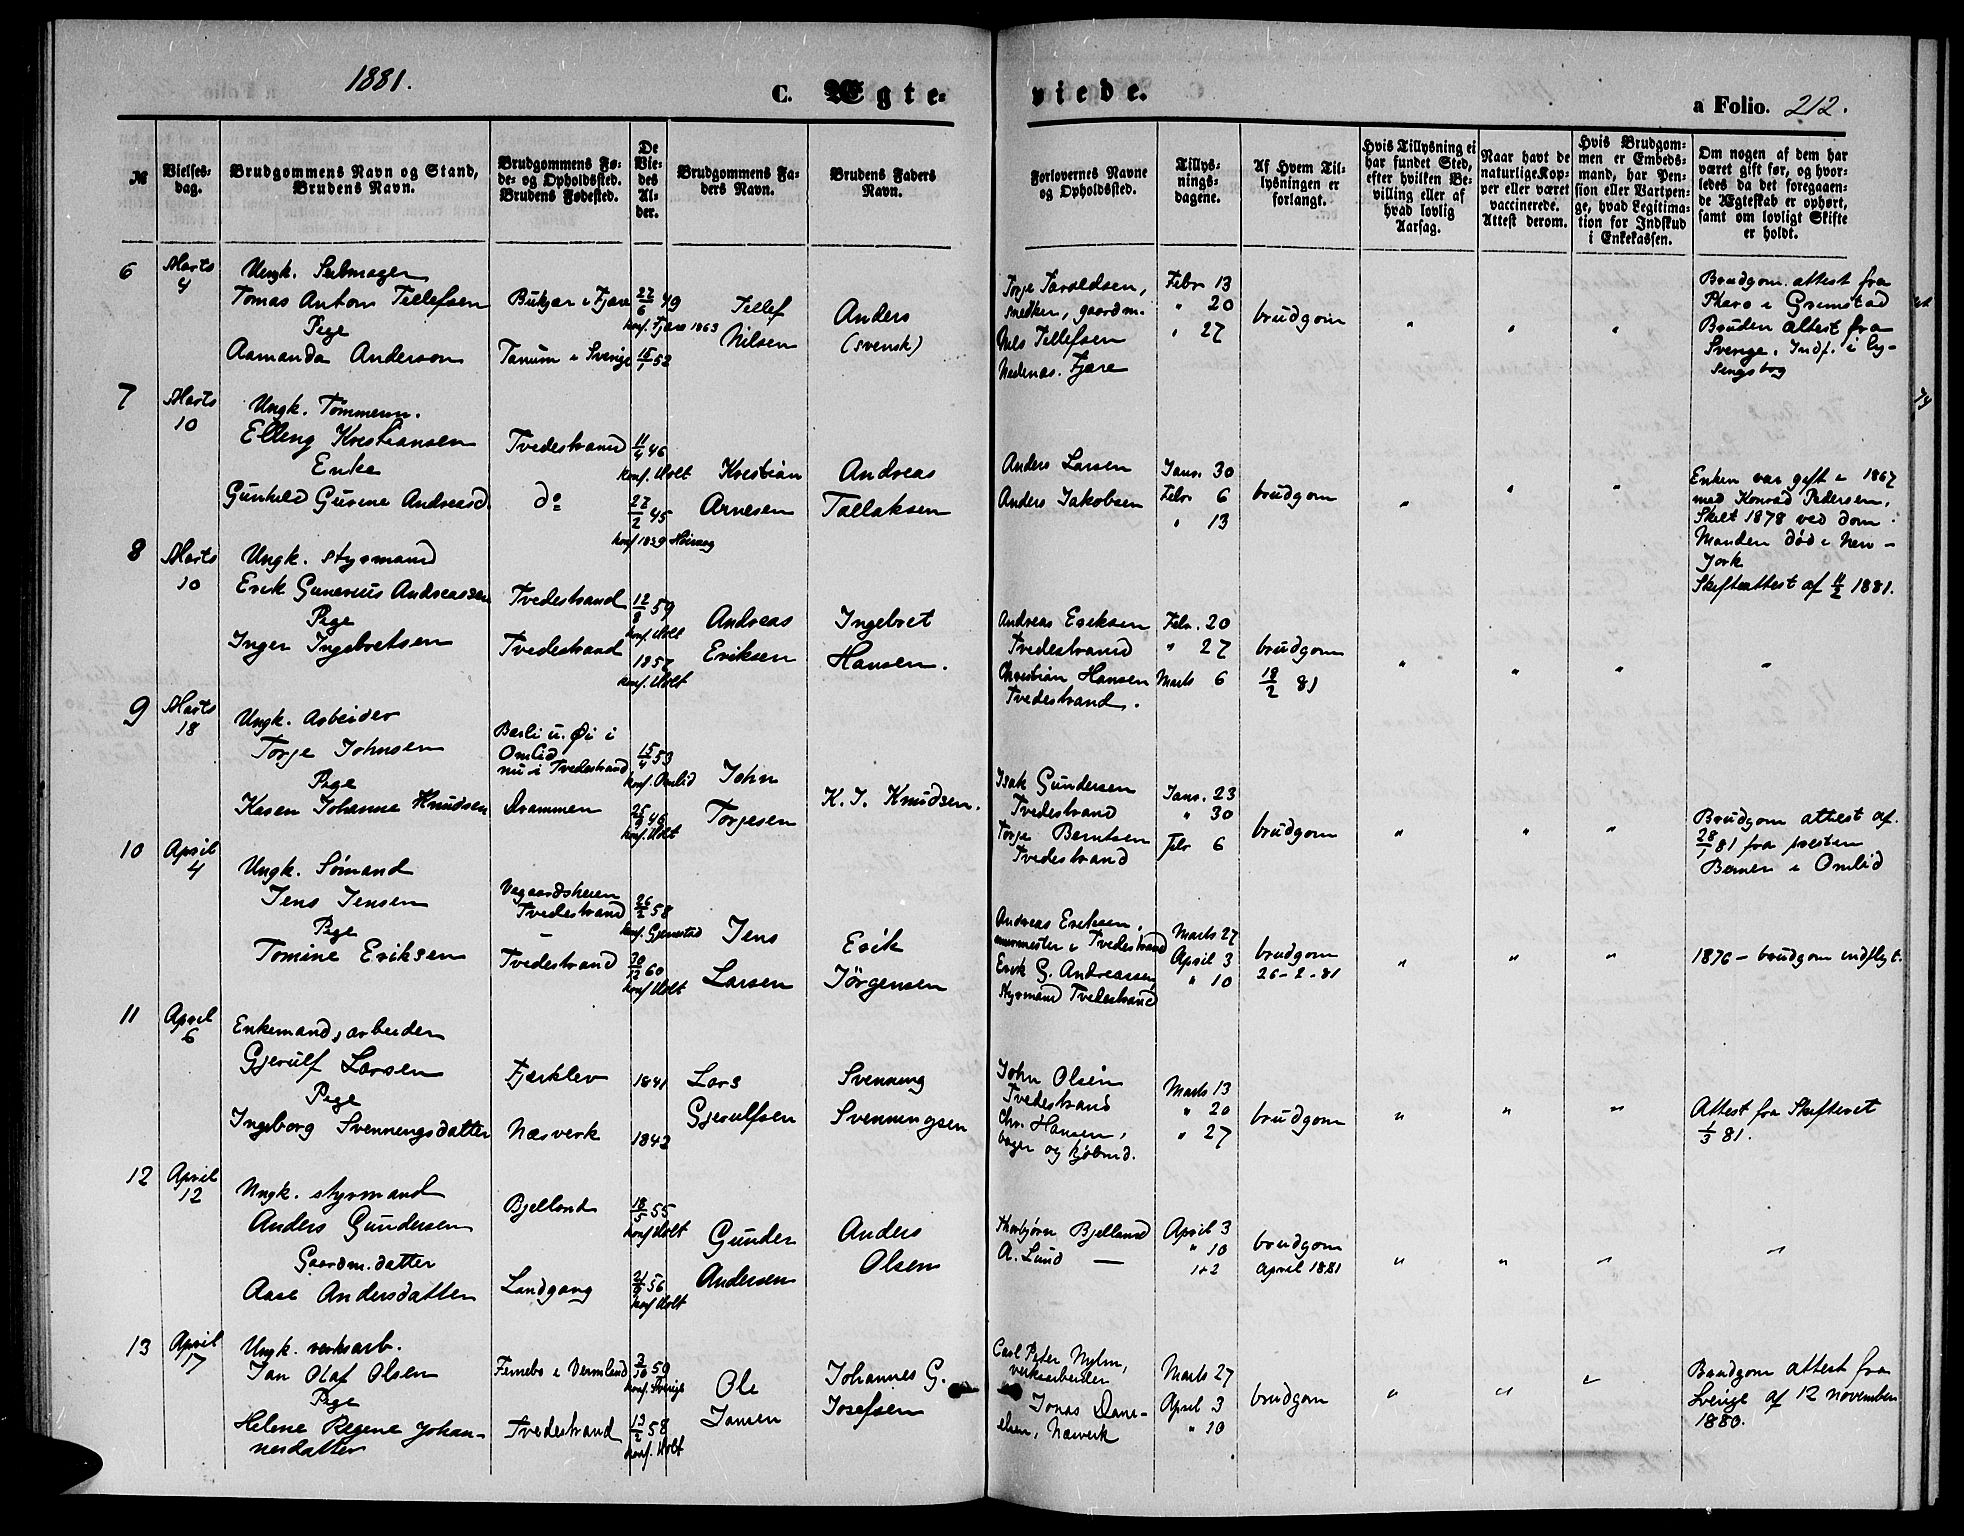 1881.
C. Ægte-
viede.
a Folio. 212.
№
Vielses-
dag.
Brudgommens Navn og Stand,
Brudens Navn.
Brudgommens Fø-
de- og Opholdssted.
Brudens Fødested.
De
Vie-
des
Al-
der.
Brudgommens Fa-
ders Navn.
Brudens Faders
Navn.
Forlovernes Navne
og Opholdssted.
Tillys-
nings-
dagene.
Af Hvem Til-
lysningen er
forlangt.
Hvis Tillysning ei
har fundet Sted,
efter hvilken Be-
villing eller af
hvad lovlig
Aarsag.
Naar havt de
naturlige Kop-
per eller været
vaccinerede.
Attest derom.
Hvis Brudgom-
men er Embeds-
mand, har Pen-
sion eller Vartpen-
ge, hvad Legitima-
tion for Indskud
i Enkekassen.
Om nogen af dem har
været gift før, og hvor-
ledes da det foregaaen-
de Ægteskab er ophørt,
samt om lovligt Skifte
er holdt.
6
Marts
4
Ungk. Seilmager
Tomas Anton Tellefsen
Pige
Aamanda Anderson
Bukjær i Fjære
Tanum i Sverige
27/6 49
konf. Fjære 1863
15/1 52
Tellef
Nilsen
Anders
(svensk)
Torje Taraldsen,
snedker, gaardm.
Nils Tellefsen
Nedenæs. Fjære
Febr 13
" 20
" 27
brudgom
"
"
"
Brudgom. attest fra
Pharo i Grimstad
Bruden attest fra
Sverige. Indf. i ly-
singsbog
7
Marts
10
Ungk. Tømmerm.
Elling Kristiansen
Enke
Gunhild Gurine Andreasd.
Tvedestrand
do
11/4 46
konf. Holt
27/2 45
Kristian
Arnesen
Andreas
Tallaksen
Anders Larsen
Anders Jakobsen
Janr. 30
Febr 6
" 13
brudgom
"
"
"
Enken var gift i 1867
med Konrad Pedersen,
Skilt 1878 ved dom.
Manden død i New-
York
Skifteattest af 11/2 1881.
8
Marts
10
Ungk. styrmand
Erik Gunerius Andreassen
Pige
Inger Ingebretsen
Tvedestrand
Tvedestrand
12/8 59
konf. Holt
1857
konf. Holt
Andreas
Eriksen
Ingebret
Hansen.
Andreas Eriksen
Tvedestrand
Christian Hansen
Tvedestrand.
Febr. 20
" 27
Marts 6
brudgom
19/2 81
"
"
"
"
9
Marts
18
Ungk. Arbeider
Torje Johnsen
Pige
Karen Johanne Knudsen
Barli u. Øi i
Omlid
nu i Tvedestrand
Drammen
15/4 53
konf. Omlid
konf. Holt
John
Torjesen
K. J. Knudsen.
Isak Gundersen
Tvedestrand
Torje Berntsen
Tvedestrand
Janr. 23
" 30
Febr 6
brudgom
"
"
"
Brudgom attest af
28/1 81 fra presten
Berner i Omlid
10
April
4
Ungk. Sømand
Jens Jensen
Pige
Tomine Eriksen
Vegaardsheien
Tvedestrand
Tvedestrand
26/2 58
konf. Gjerrestad
30/12 60
konf Holt
Jens
Larsen
Erik
Jörgensen
Andreas Eriksen,
murmester i Tvedestrand
Erik G. Andreassen,
Styrmand Tvedestrand
Marts 27
April 3
" 10
brudgom
26-2-81
"
"
"
1876 - brudgom indflyt.
11
April
6
Enkemand, arbeider
Gjerulf Larsen
Pige
Ingeborg Svenningsdatter
Fjærklev
Næsverk
1841
1842
Lars
Gjerulfsen
Svenning
Svenningsen
John Olsen
Tvedestrand
Chr. Hansen,
bager og kjöbmd.
Marts 13
" 20
" 27
brudgom
"
"
"
Attest fra Skifteret
1/3 81.
12
April
12
Ungk. styrmand
Anders Gundersen
Gaardm.datter
Aase Andersdatter
Bjelland
Landgang
18/5 55
konf Holt
21/9 56
konf Holt
Gunder
Andersen
Anders
Olsen
Thorbjørn Bjelland
A. Lund —
April 3
" 10
brudgom
April 1881
"
"
"
"
13
April
17
Ungk. verksarb.
Jan Olaf Olsen
Pige
Helene Regine Johan-
nesdatter
Fernebo i Vermland
Tvedestrand
3/10 59
konf. Sverige
13/2 58
konf. Holt
Ole
Jansen
Johannes G.
Josefsen
Carl Peter Nylin,
verksarbeider
Jonas Dani-
elsen, Næsverk
Marts 27
April 3
" 10
brudgom
"
"
"
Brudgom attest fra
Sverige af 12 november
1880.